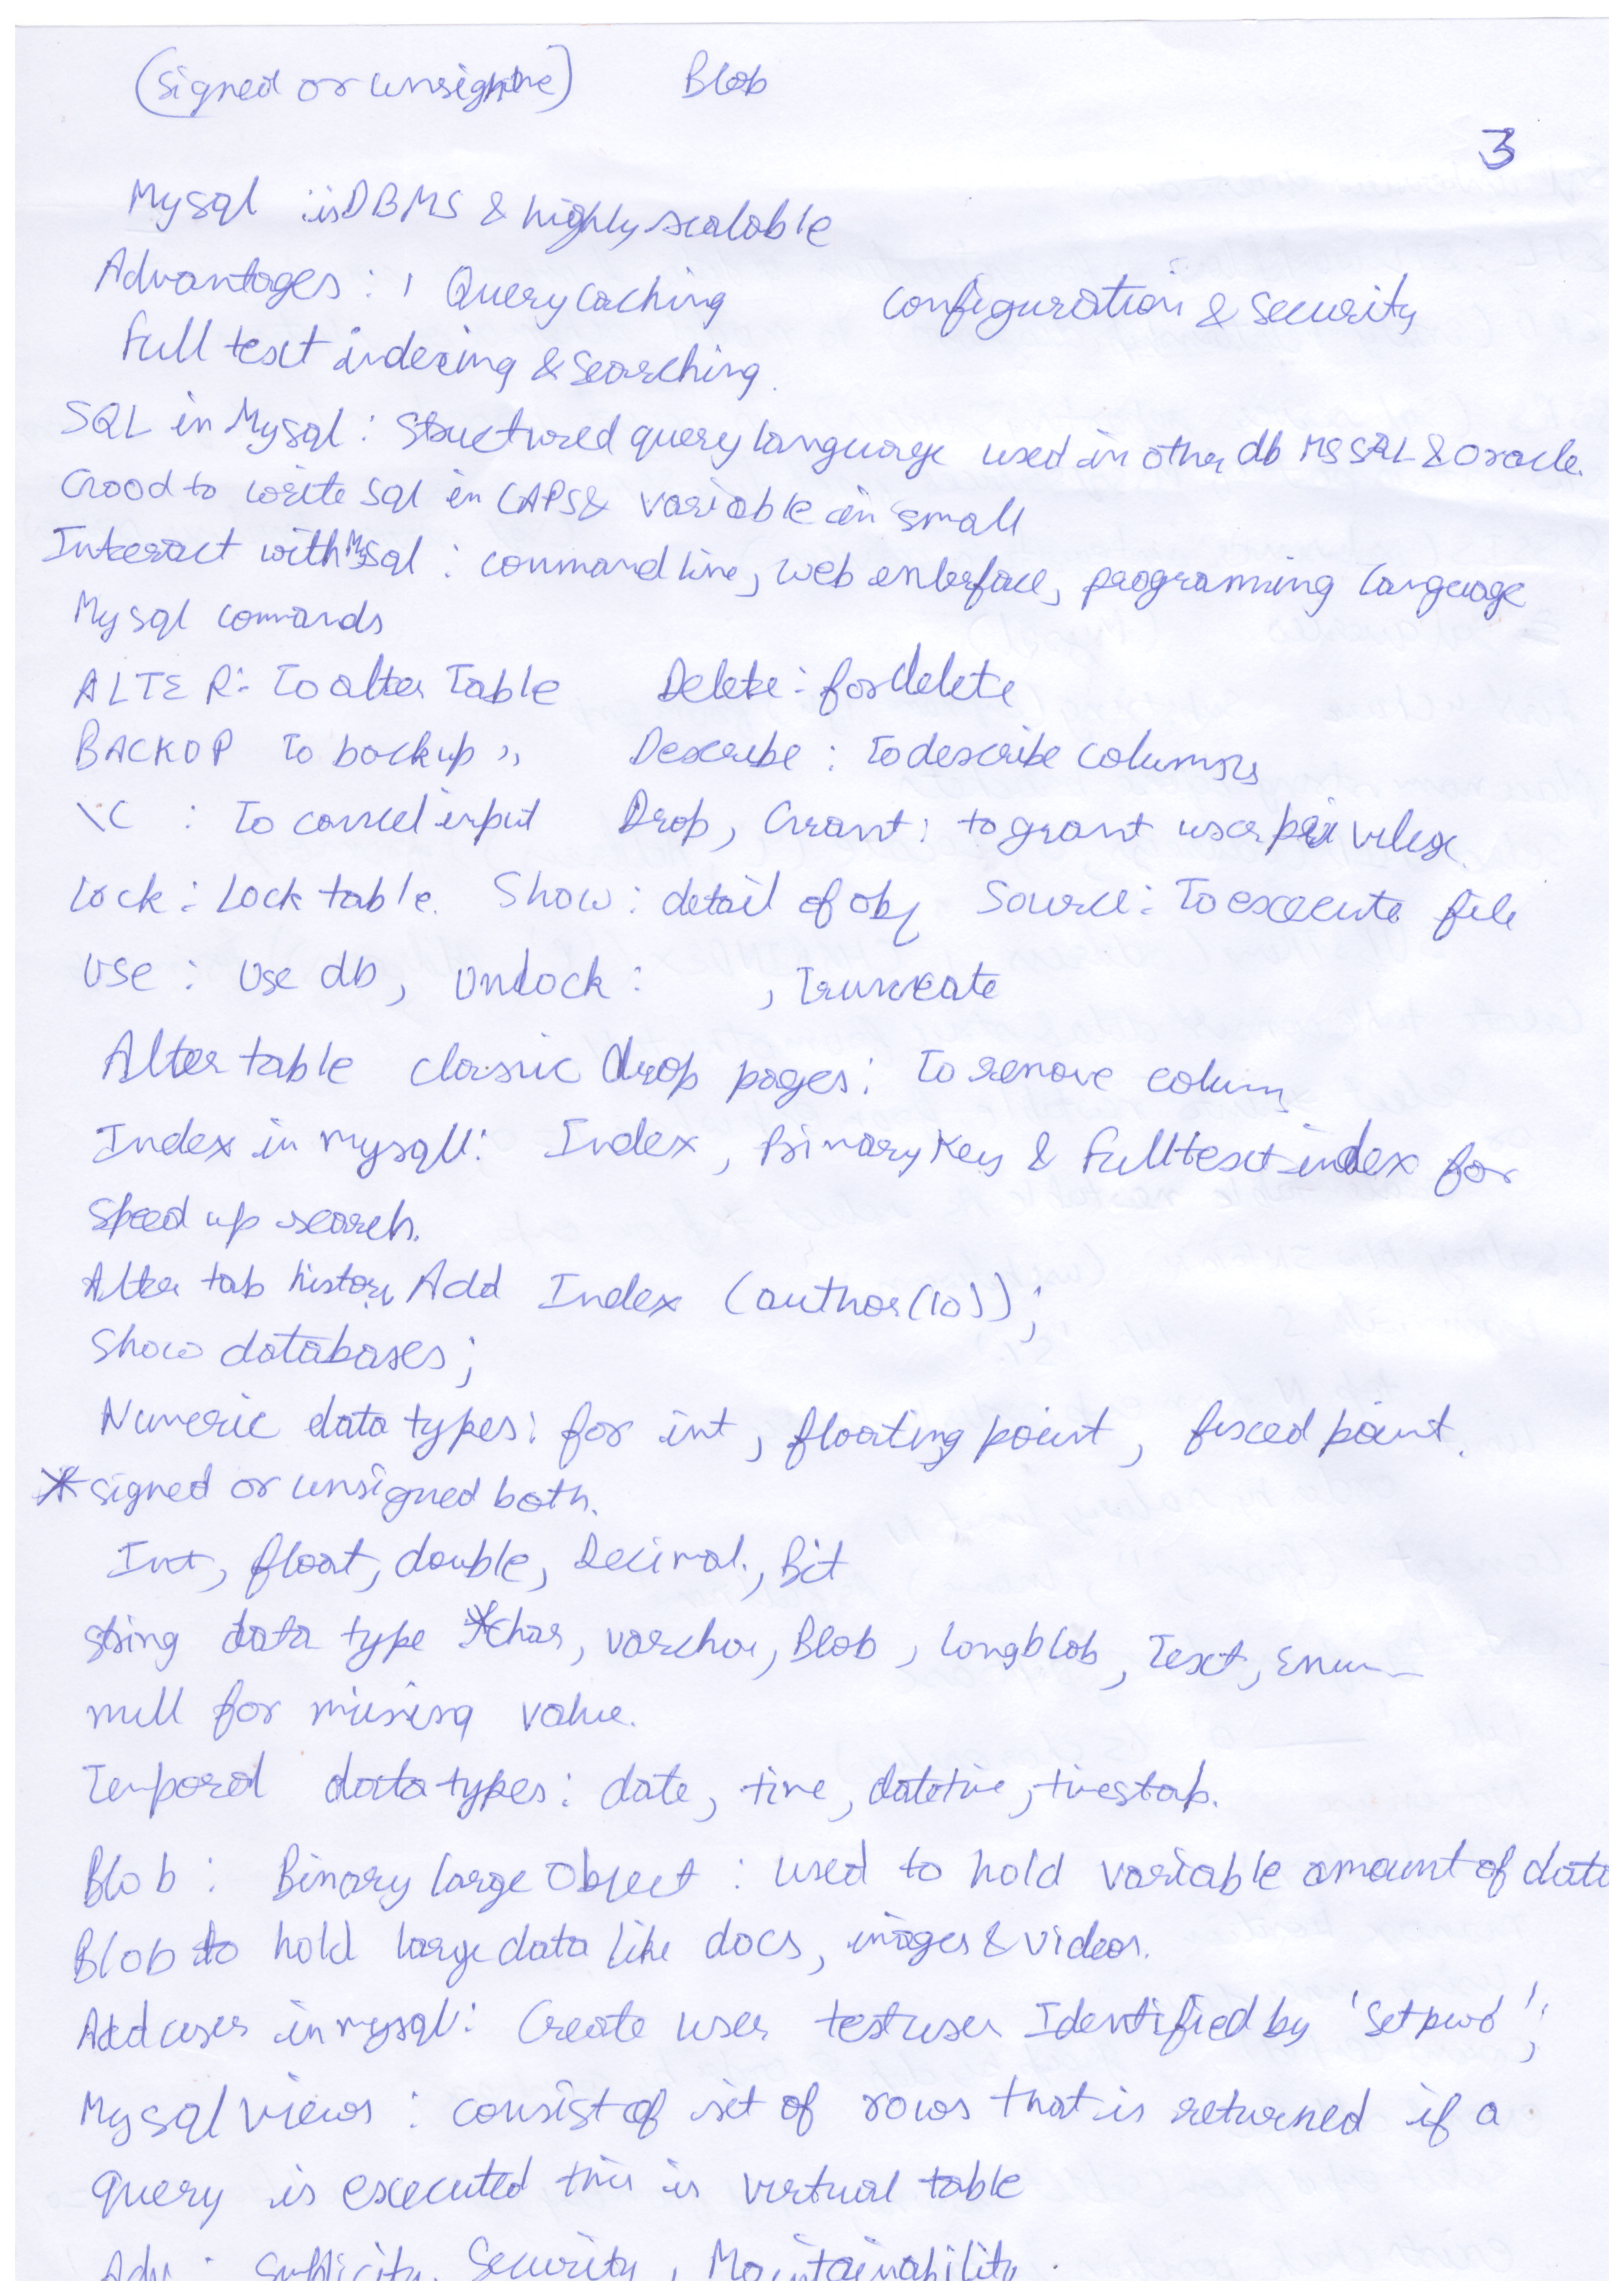 (signed or unsigne) Blob
3
Mysql : is DBMS & highly scalable
Advantages : 1 Query caching configuration & security
Full text indexing & searching.
SQL in Mysql : Structured query language used in other db MS SQL & Oracle.
Good to write sql in CAPS & variable in small
Interact with Mysql : command line, web enterface, programming language
Mysql comands
ALTER : To alter Table Delete : for delete
BACKUP To backup ,, Describe : To describe columns
\C : To cancel input Drop, Grant : to grant user privilege.
Lock : Lock table. Show : detail of obj Source : To execute file
USE : Use db, Unlock : , Truncate
Alter table classic drop pages : To remove colum
Index in mysql : Index, Primary Key & Fulltext index for
Speed up search.
Alter tab history Add Index (author(10));
Show databases;
Numeric data types : for int, floating point, fixed point.
* signed or unsigned both.
Int, float, double, Decimal., Bit
string data type * Char, varchar, Blob, longblob, Text, Enum
null for missing value.
Temporal data types : date, time, datetime, timestab.
Blob : Binary large Object : used to hold variable amount of data
Blob to hold large data like docs, images & videos.
Add user in mysql : Create user testuser Identified by 'Setpwd';
Mysql views : consist of set of rows that is returned if a
query is executed this is virtual table
Adv : Security, Maintainability.